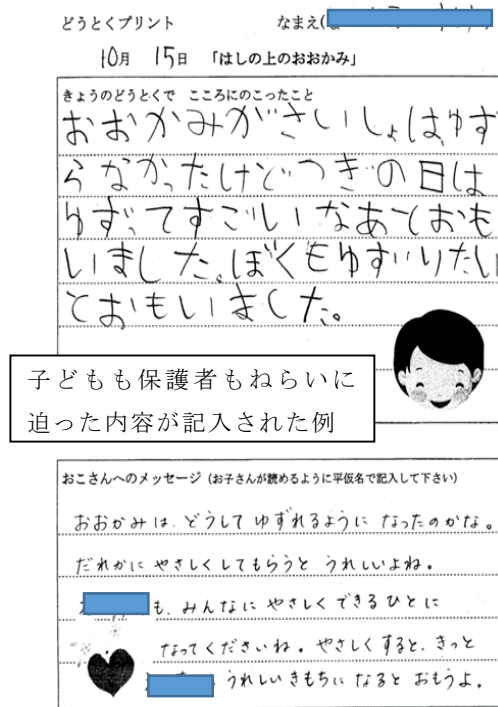 どうとくプリント　なまえ(
10月 15日 「はしの上のおおかみ」
きょうのどうとくで こころにのこったこと
おおかみがさいしょはゆず
らなかったけどつぎの日は
ゆずってすごいいなあとおも
いました。ぼくもゆずりたい
とおもいました。
子どもも保護者もねらいに
迫った内容が記入された例
おこさんへのメッセージ（お子さんが読めるように平仮名で記入して下さい）
おおかみは、どうして ゆずれるように なったのかな。
だれかに やさしくしてもらうと うれしいよね。
も、みんなに やさしく できるひとに
なってくださいね。やさしくすると、きっと
うれしいきもちに なると おもうよ。